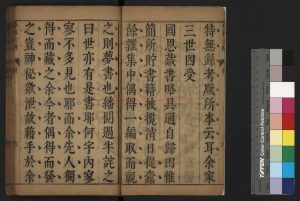 特無錄考厥所本云耳余家
三世四受
國恩藏書略具自歸田惟
簡所貯書籍披覽日從蠹
餘集中偶得一編取而視
之則夢書也繙閱過半詫之
曰世亦有是書耶何宇內寥
寥不多見也耶而余先人獨
得而藏之余今者偶得而發
之豈神祕欲泄故藉手於余
TIFFEN Color Control Patches